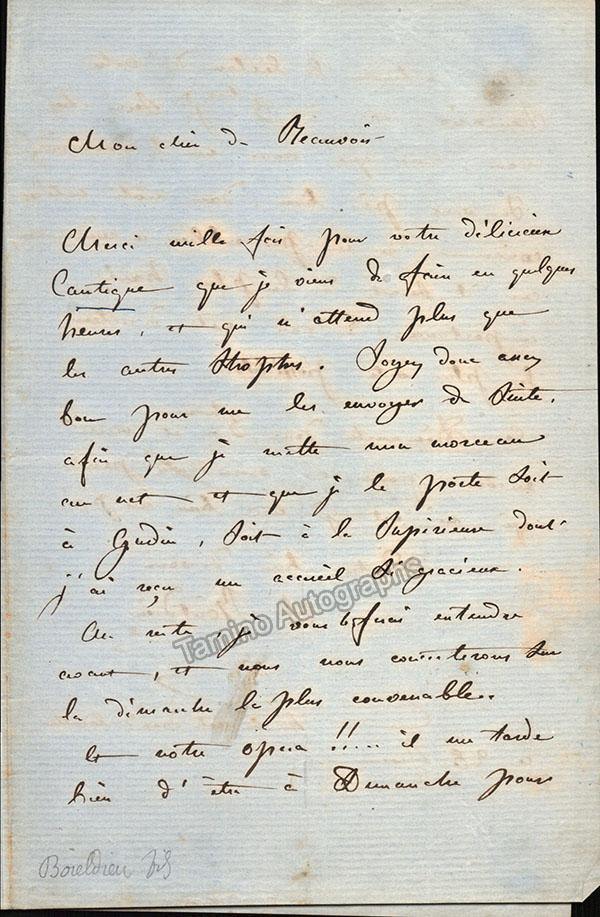 Mon cher de Beauvoir
Merci mille fois pour votre délicieux
Cantique que je viens de faire en quelques
heures, et qui n'attend plus que
les autres Strophes. Soyez donc assez
bon pour me les envoyer de Suite,
afin que je mette mon morceau
au net et que je le porte Soit
à Gudin, Soit à la Supérieure dont
j'ai reçu un accueil Si gracieux.
Au reste, je vous le ferai entendre
avant, et nous nous concerterons Sur
la démarche la plus convenable.
Et notre opéra !!... il me tarde
bien d'être à Dimanche pour
Boieldieu fils
Tamino Autographs